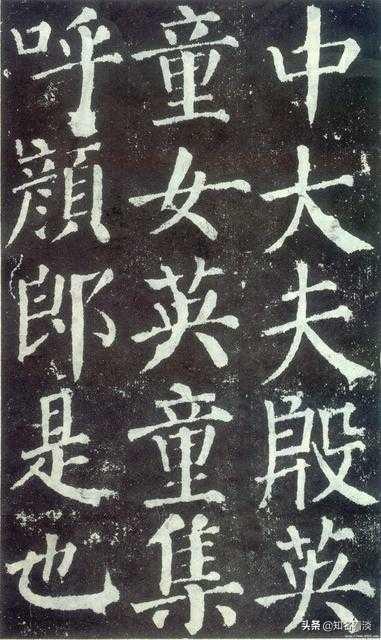 中大夫殷英
童女英童集
呼顔郎是也
头条 @知名清淡